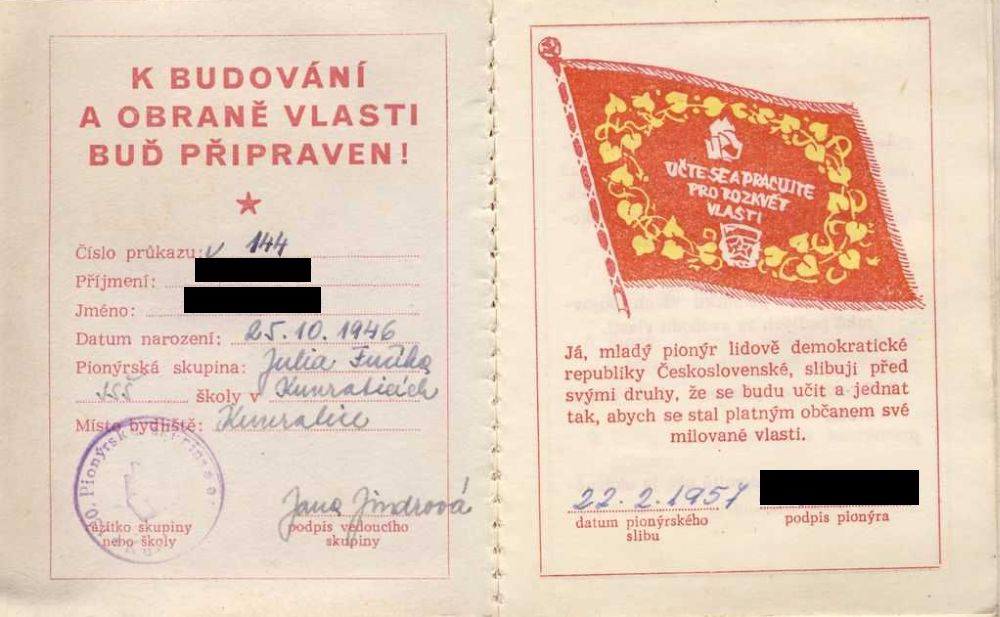 K BUDOVÁNÍ
A OBRANĚ VLASTI
BUĎ PŘIPRAVEN!
Číslo průkazu: 144
Příjmení:
Jméno:
Datum narození: 25. 10. 1946
Pionýrská skupina: Julia Fučíka
školy v Kunraticích
Místo bydliště: Kunratice
Pionýrská skupina
razítko skupiny
nebo školy
Jana Jindrová
podpis vedoucího
skupiny
UČTE SE A PRACUJTE
PRO ROZKVĚT
VLASTI
Já, mladý pionýr lidově demokratické
republiky Československé, slibuji před
svými druhy, že se budu učit a jednat
tak, abych se stal platným občanem své
milované vlasti.
22. 2. 1957
datum pionýrského
slibu
podpis pionýra